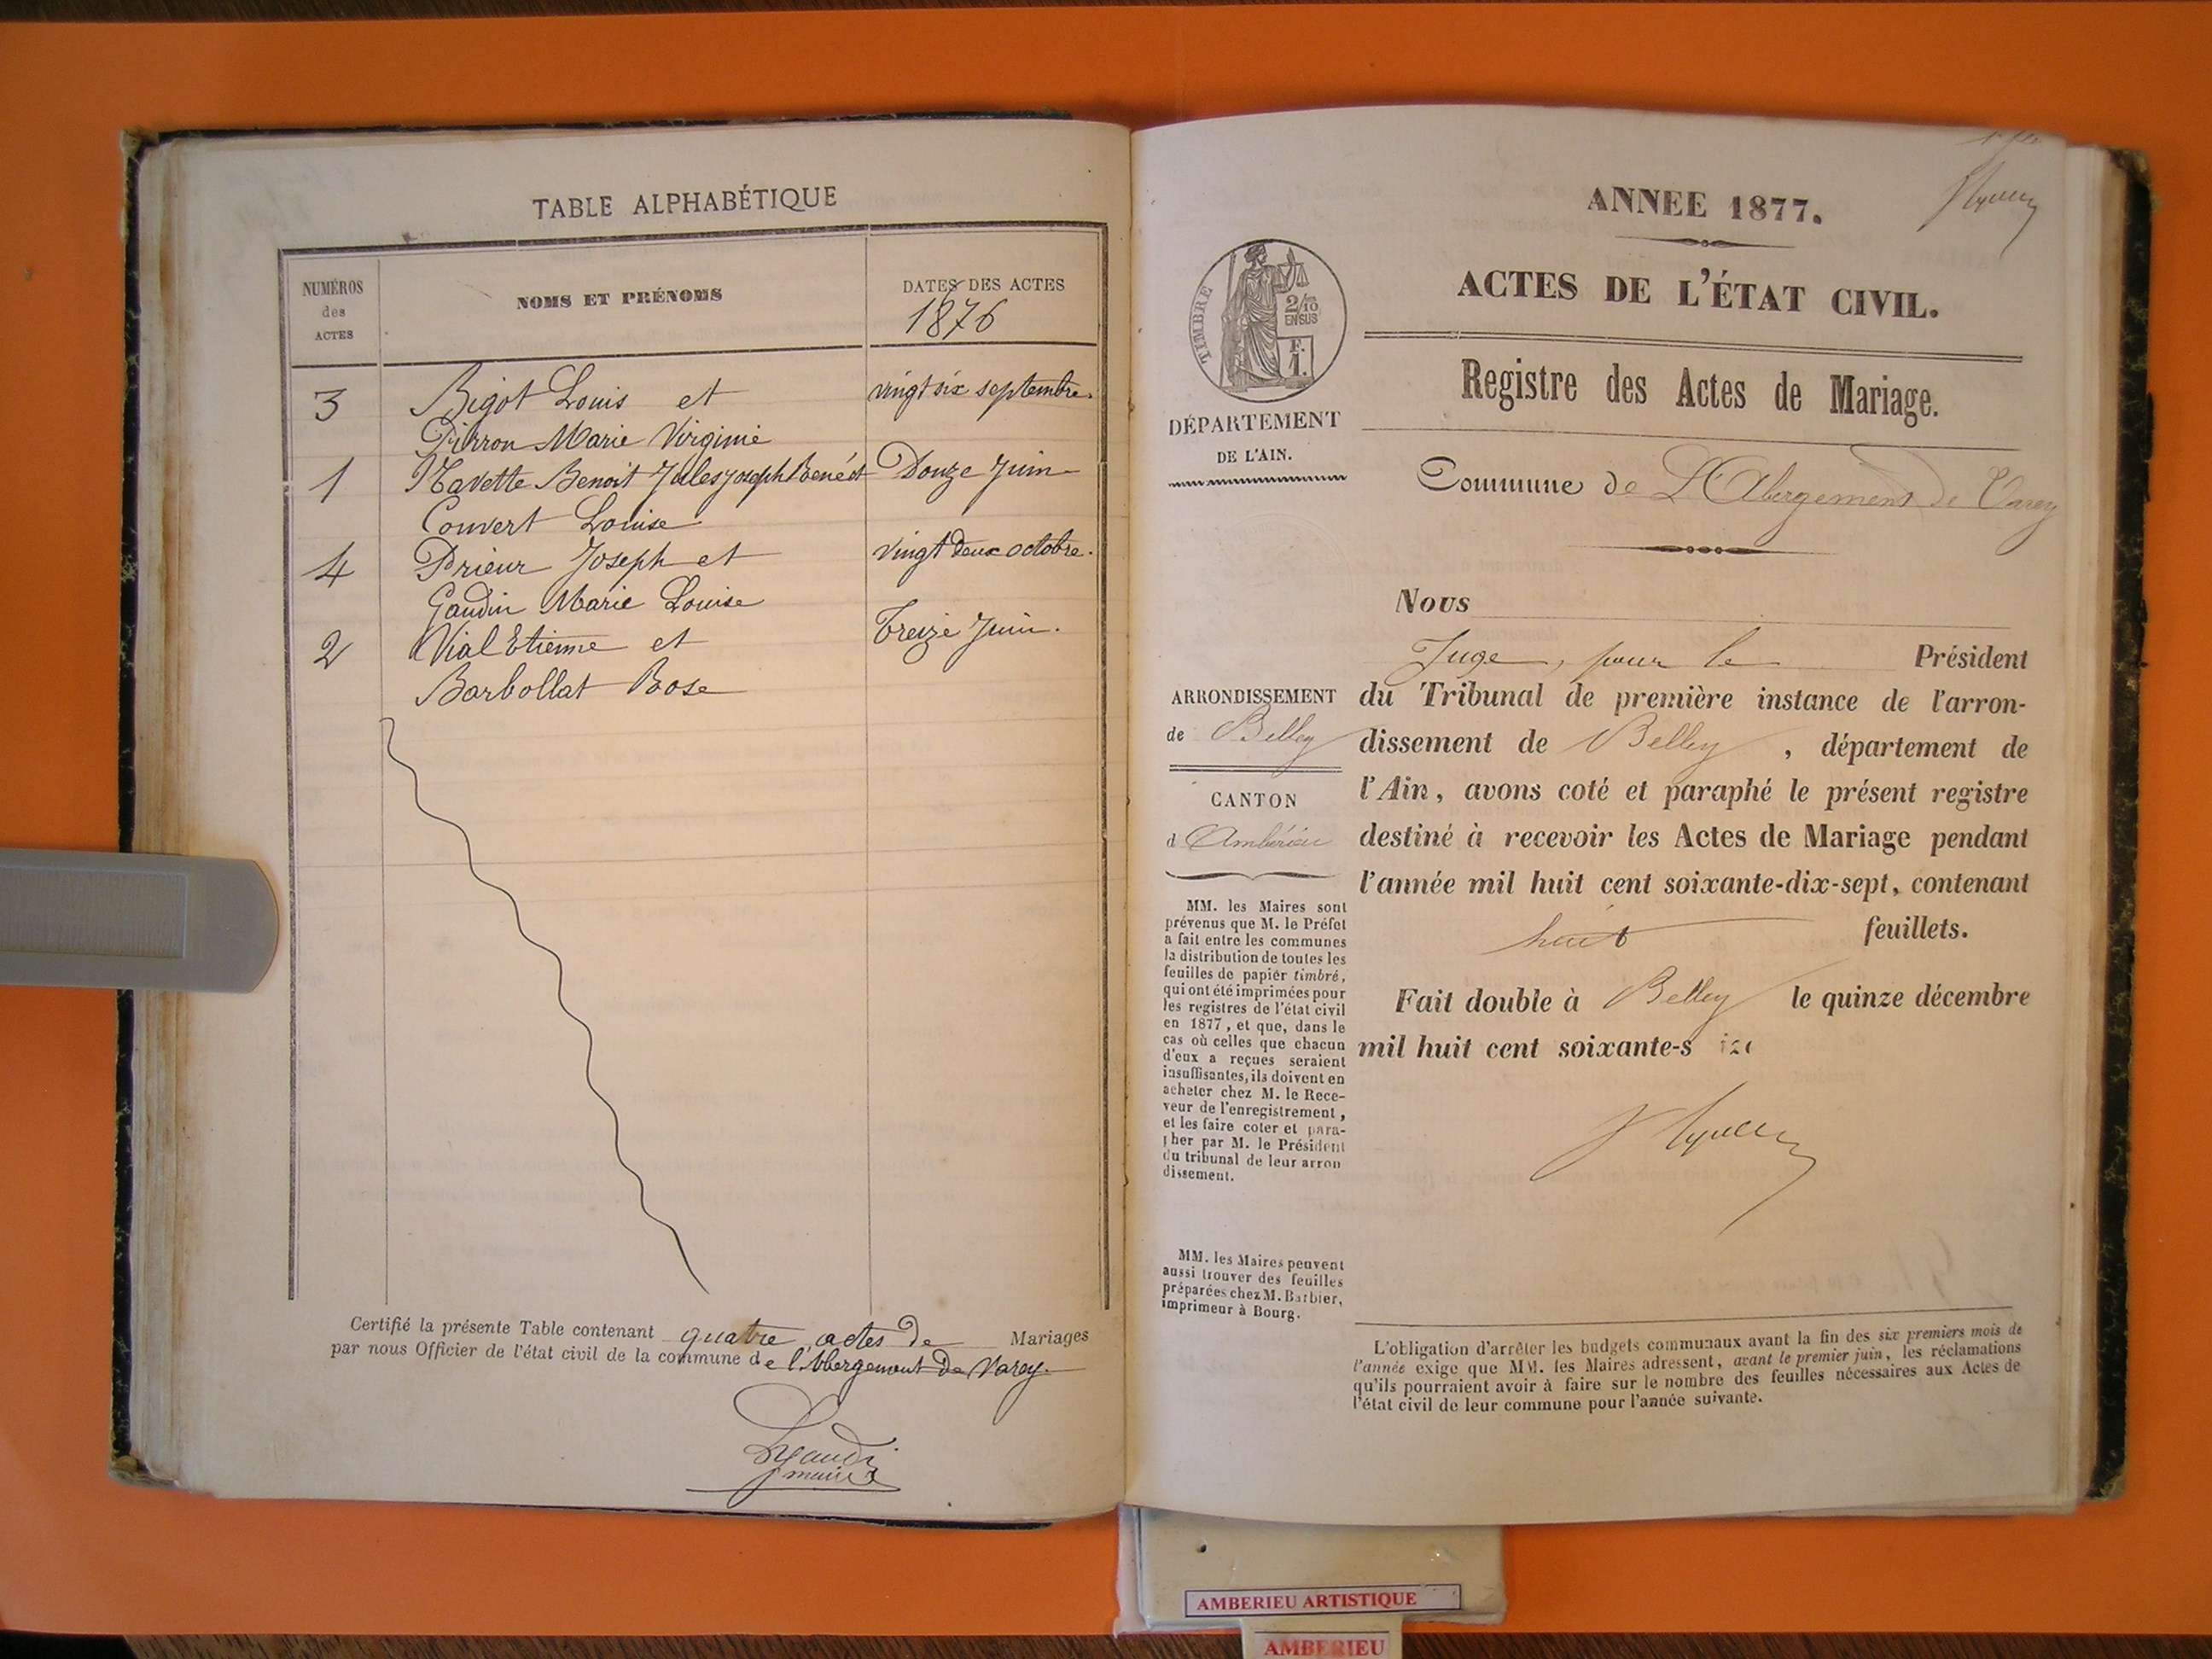 TABLE ALPHABÉTIQUE
NUMÉROS
des
ACTES
NOMS ET PRÉNOMS
DATES DES ACTES
1876
3 Bigot Louis et vingt six septembre.
Pirron Marie Virginie
1 Navette Benoit Jules Joseph René et Douze Juin
Convert Louise
4 Prieur Joseph et vingt deux octobre.
Gaudin Marie Louise
2 Vial Etienne et Treize Juin.
Barbollat Rose
Certifié la présente Table contenant quatre actes de Mariages
par nous Officier de l'état civil de la commune de l'Abergement de Varey.
maire
ANNEE 1877.
ACTES DE L'ÉTAT CIVIL.
Registre des Actes de Mariage.
Commune de L'Abergement de Varey
TIMBRE
2/10
EN SUS
F.
1.
DÉPARTEMENT
DE L'AIN.
ARRONDISSEMENT
de Belley
CANTON
d'Ambérieu
MM. les Maires sont
prévenus que M. le Préfet
a fait entre les communes
la distribution de toutes les
feuilles de papier timbré,
qui ont été imprimées pour
les registres de l'état civil
en 1877, et que, dans le
cas où celles que chacun
d'eux a reçues seraient
insuffisantes, ils doivent en
acheter chez M. le Rece-
veur de l'enregistrement,
et les faire coter et para-
pher par M. le Président
du tribunal de leur arron
dissement.
MM. les Maires peuvent
aussi trouver des feuilles
préparées chez M. Barbier,
imprimeur à Bourg.
Nous
Juge, pour le Président
du Tribunal de première instance de l'arron-
dissement de Belley, département de
l'Ain, avons coté et paraphé le présent registre
destiné à recevoir les Actes de Mariage pendant
l'année mil huit cent soixante-dix-sept, contenant
huit feuillets.
Fait double à Belley le quinze décembre
mil huit cent soixante-s ize
L'obligation d'arrêter les budgets communaux avant la fin des six premiers mois de
l'année exige que MM. les Maires adressent, avant le premier juin, les réclamations
qu'ils pourraient avoir à faire sur le nombre des feuilles nécessaires aux Actes de
l'état civil de leur commune pour l'année suivante.
AMBERIEU ARTISTIQUE
AMBERIEU